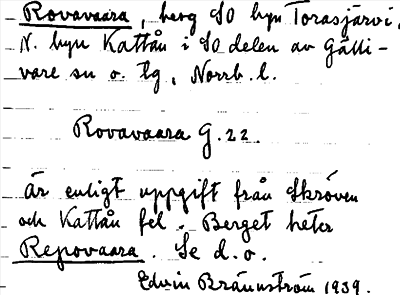 Rovavaara, berg SO byn Torasjärvi,
N. byn Kattån i SO delen av Gälli-
vare sn o. tg, Norrb. l.
Rovavaara G. 22.
är enligt uppgift från Skröven
och Kattån fel. Berget heter
Repovaara. Se d. o.
Edvin Brännström 1939.